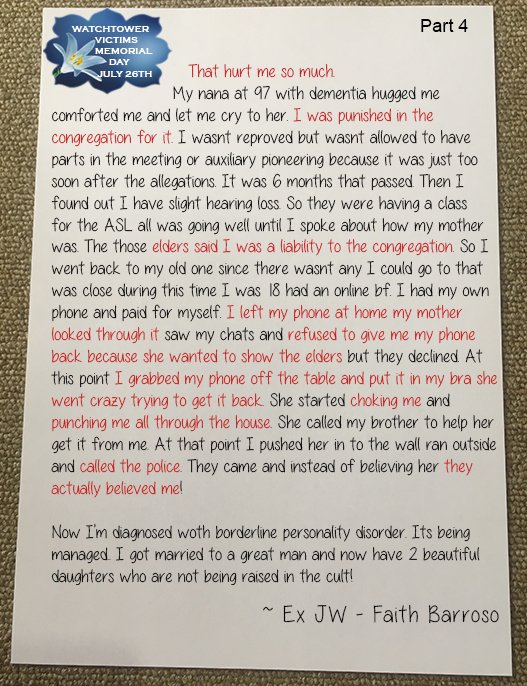 Part 4
WATCHTOWER
VICTIMS
MEMORIAL
DAY
JULY 26TH
That hurt me so much.
My nana at 97 with dementia hugged me
comforted me and let me cry to her. I was punished in the
congregation for it. I wasnt reproved but wasnt allowed to have
parts in the meeting or auxiliary pioneering because it was just too
soon after the allegations. It was 6 months that passed. Then I
found out I have slight hearing loss. So they were having a class
for the ASL all was going well until I spoke about how my mother
was. The those elders said I was a liability to the congregation. So I
went back to my old one since there wasnt any I could go to that
was close during this time I was 18 had an online bf. I had my own
phone and paid for myself. I left my phone at home my mother
looked through it saw my chats and refused to give me my phone
back because she wanted to show the elders but they declined. At
this point I grabbed my phone off the table and put it in my bra she
went crazy trying to get it back. She started choking me and
punching me all through the house. She called my brother to help her
get it from me. At that point I pushed her in to the wall ran outside
and called the police. They came and instead of believing her they
actually believed me!
Now I'm diagnosed woth borderline personality disorder. Its being
managed. I got married to a great man and now have 2 beautiful
daughters who are not being raised in the cult!
~ Ex JW - Faith Barroso